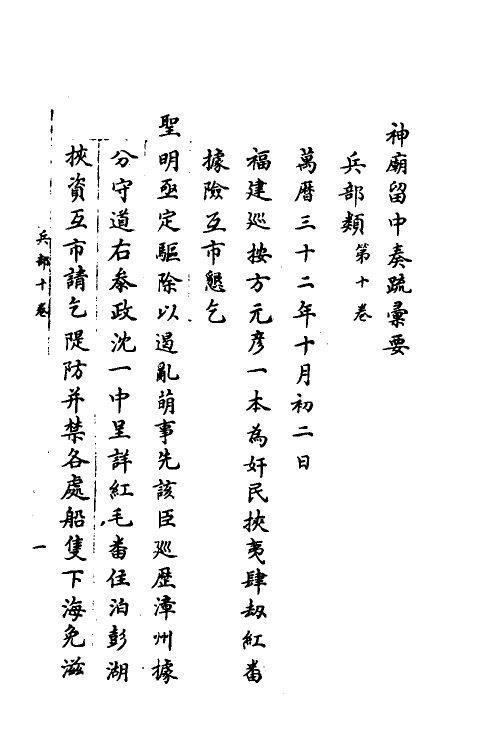 神廟留中奏疏彙要
兵部類第十卷
萬曆三十二年十月初二日
福建巡按方元彦一本為奸民挾夷肆劫紅番
據險互市懇乞
聖明亟定驅除以遏亂萌事先該臣巡歷漳州據
分守道右叅政沈一中呈詳紅毛番住泊彭湖
挾資互市請乞隄防并禁各處船隻下海免滋
兵部十卷
一